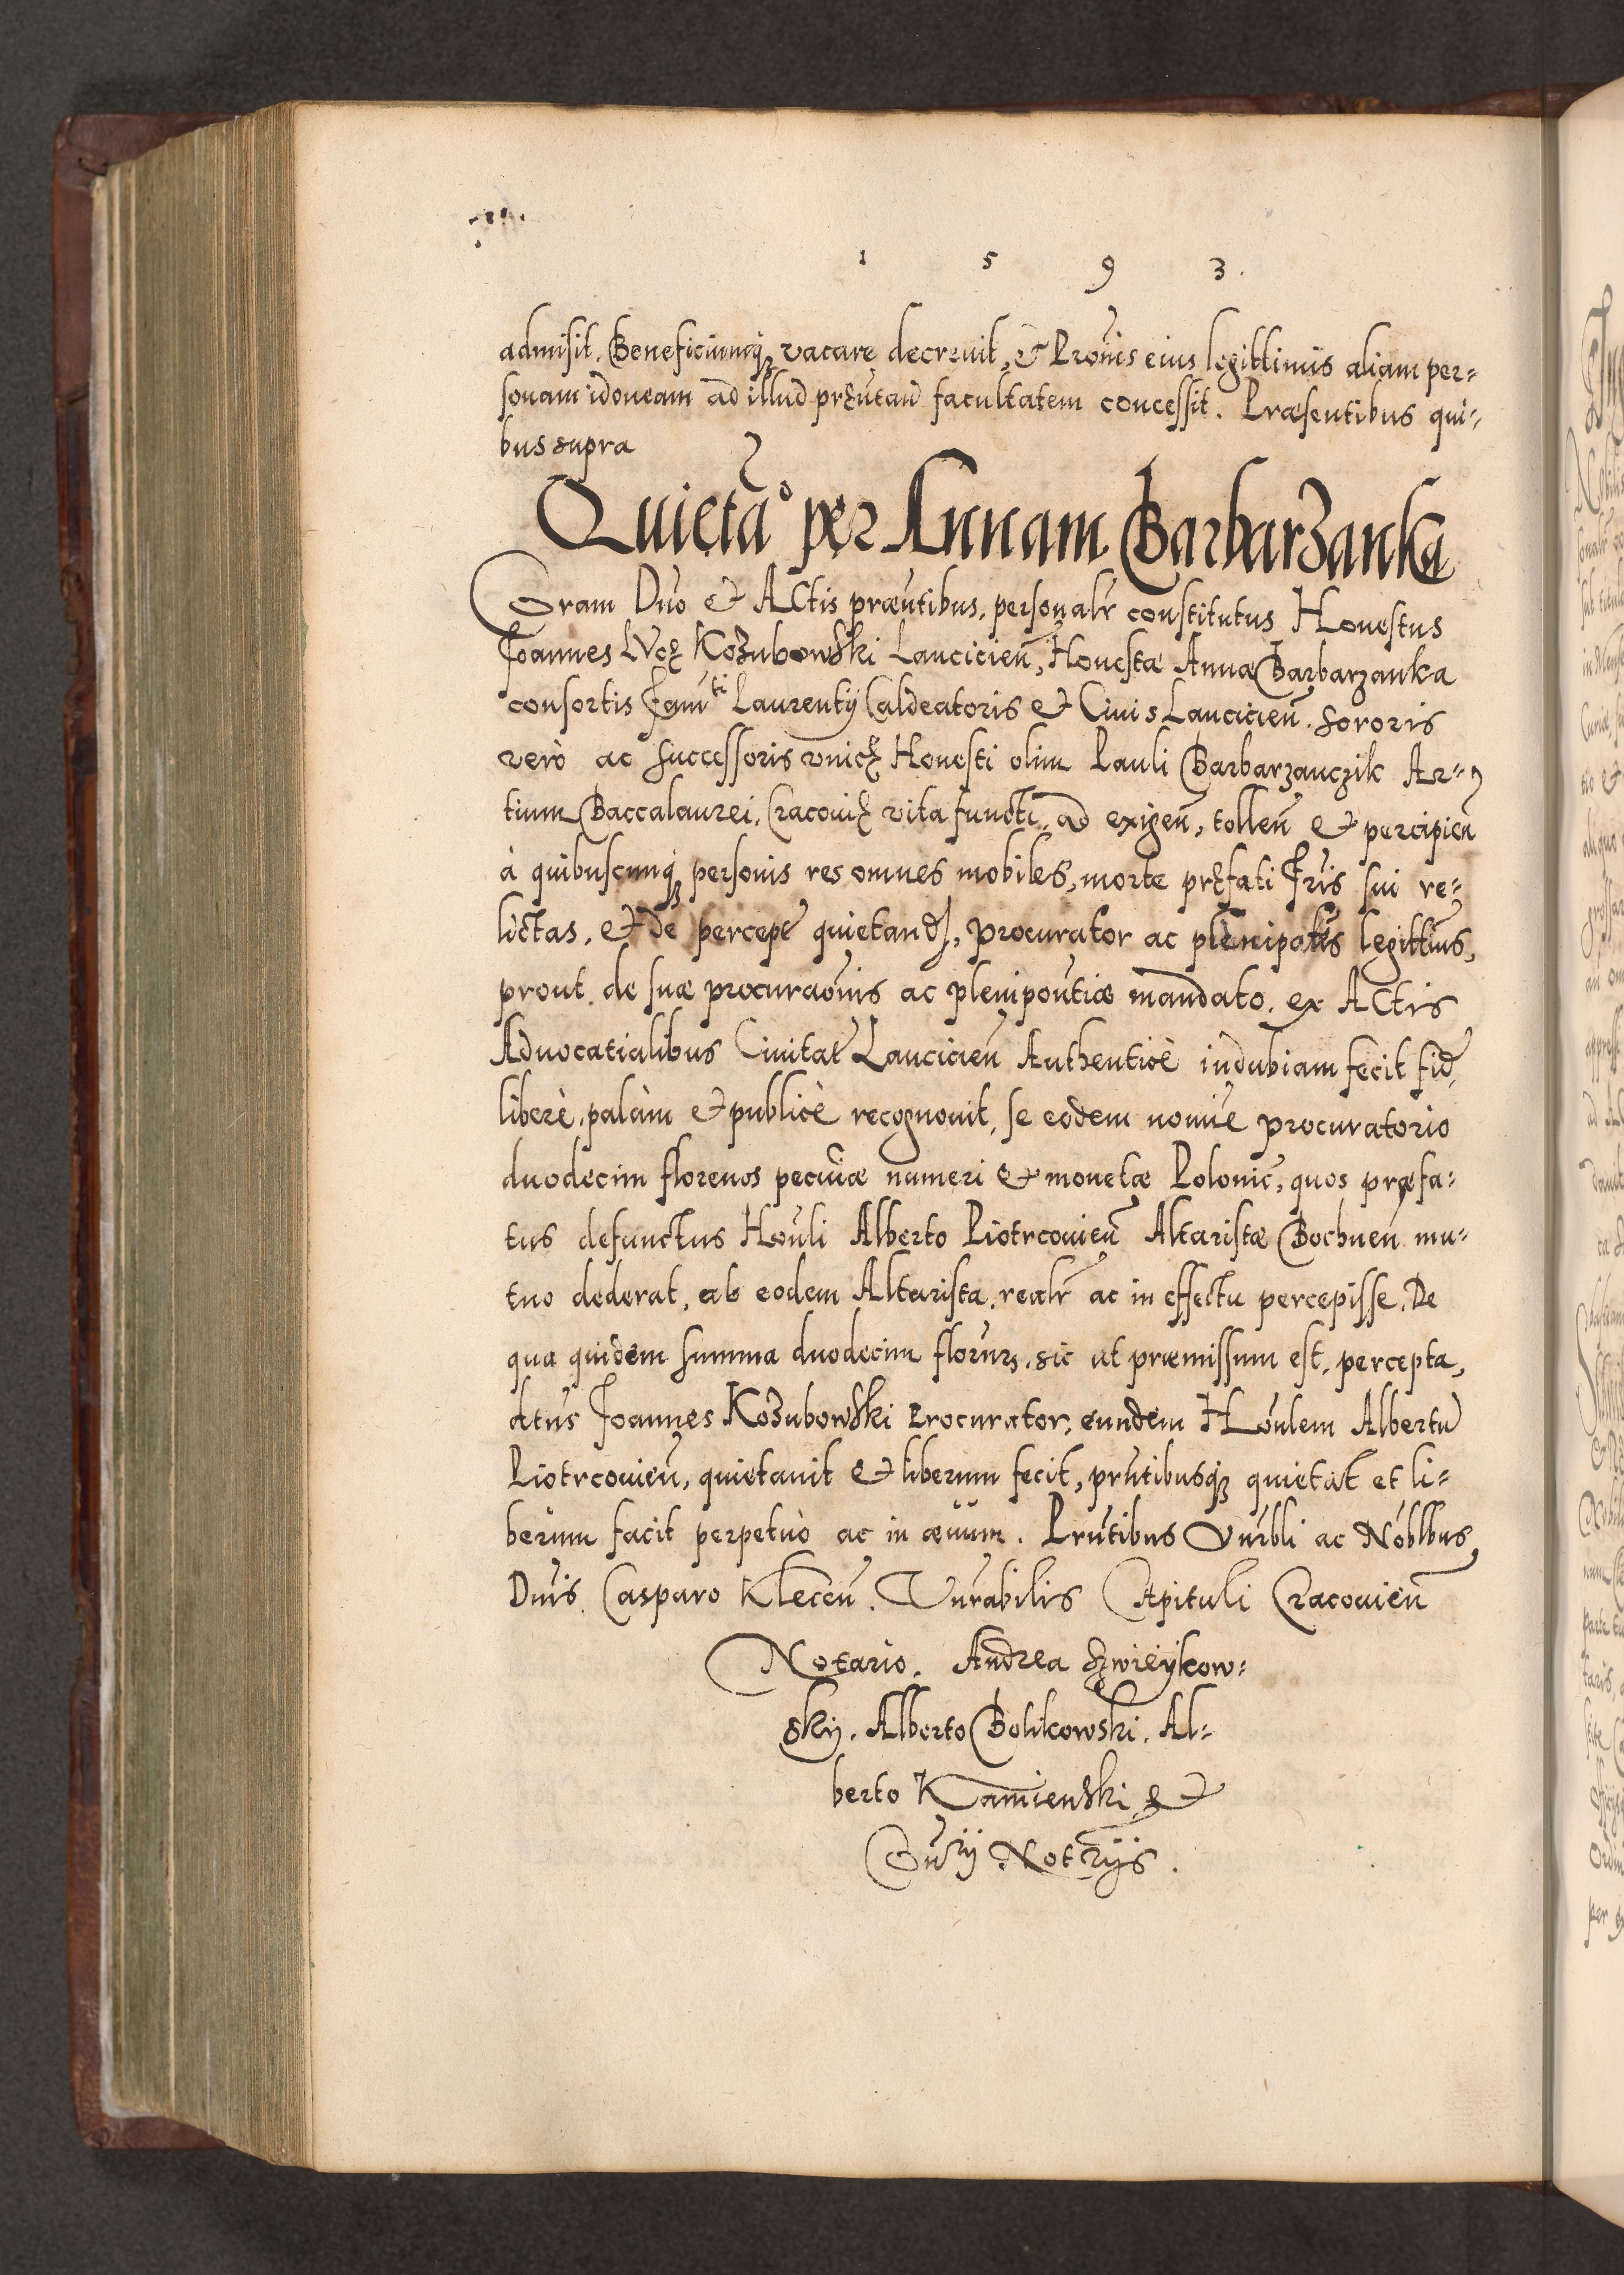 1 5 9 3.
admisit. Beneficiumq₃ vacare decrevit, et Pronis eius legittimis aliam per=
sonam idoneam ad illud pręntand facultatem concessit. Præsentibus qui=
bus supra
Quietaᵒ per Annam Barbarzanka
Coram Dno et Actis præntibus, personalr constitutus Honestus
Joannes Kozubowski Lancicien, Honestæ Annæ Barbarzanka
consortis fam^ti Laurentij Caldeatoris et Civis Lancicien. Sororis
verò ac successoris unicę Honesti olim Pauli Barbarzanczik Ar=
tium Baccalaurei, Cracovię vita functi, ad exigen, tollen et percipien
à quibuscunq₃ personis res omnes mobiles, morte pręfati Fris sui re=
lictas, et de percept quietand, procurator ac plenipotens legittimus,
prout de suæ procuraonis ac plenipontiæ mandato, ex Actis
Advocatialibus Civitat Lancicien Authenticè indubiam fecit fid,
liberè, palàm et publicè recognovit, se eodem nomine procuratorio
duodecim florenos pecuniæ numeri et monetæ Polonic, quos præfa=
tus defunctus Honuli Alberto Piotrcovien Altaristæ Bochnen mu=
tuo dederat, ab eodem Altarista, realr ac in effectu percepisse. De
qua quidem summa duodecim florunr, sic ut præmissum est, percepta,
dtus Joannes Kozubowski Procurator, eundem Honulem Albertu
Piotrcovien, quietavit et liberum fecit, prntibusq₃ quietat et li=
berum facit perpetuò ac in ævum. Prntibus Vnrbli ac Noblbus
Dnis Casparo Klecen. Vnrabilis Capituli Cracovien
Notario. Andrea Szwieykow=
skij. Alberto Bolikowski. Al=
berto Kamienski et
Notrijs.